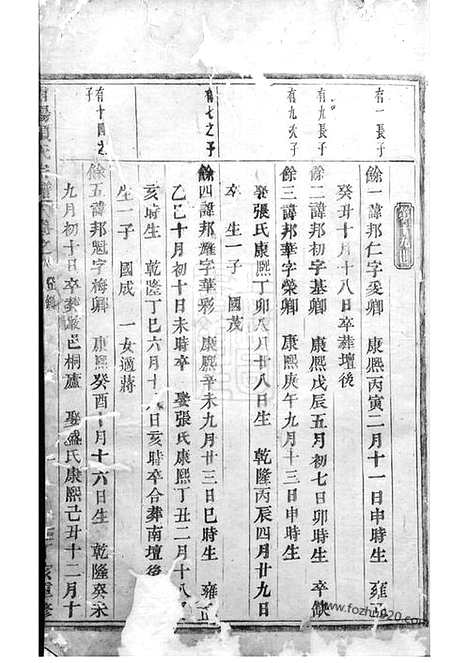 有一長子
餘一諱邦仁字爰卿 康熙丙寅二月十一日申時生 雍正
癸丑十月十八日卒葬壇後
有九長子
餘二諱邦初字基卿 康熙戊辰五月初七日卯時生 卒欽
有九次子
餘三諱邦華字榮卿 康熙庚午九月十三日申時生
娶張氏康熙丁卯八月廿八日生 乾隆丙辰四月廿九日
卒 生一子 國茂
有七之子
餘四諱邦耀字華彩 康熙辛未九月廿三日巳時生 雍正
乙巳十月初十日未時卒 娶張氏康熙丁丑二月十八
亥時生 乾隆丁巳六月十八日亥時卒合葬南壇後
生一子 國成 一女適蔣
有十四之子
餘五諱邦魁字梅卿 康熙癸酉十月十六日生 乾隆癸未
九月初十日卒葬嚴邑桐廬 娶盛氏康熙己丑十二月十
www.fozhu920.com